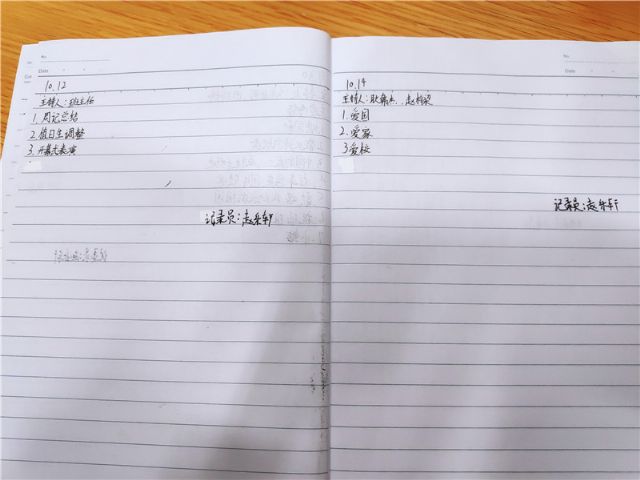 No
Date
10.12
主持人:班主任
1.周记总结
2.值日生调整
3.开幕式表演
记录员:赵乐轩
No
Date
10.14
主持人:
1.爱国
2.爱家
3爱校
记录员:赵乐轩